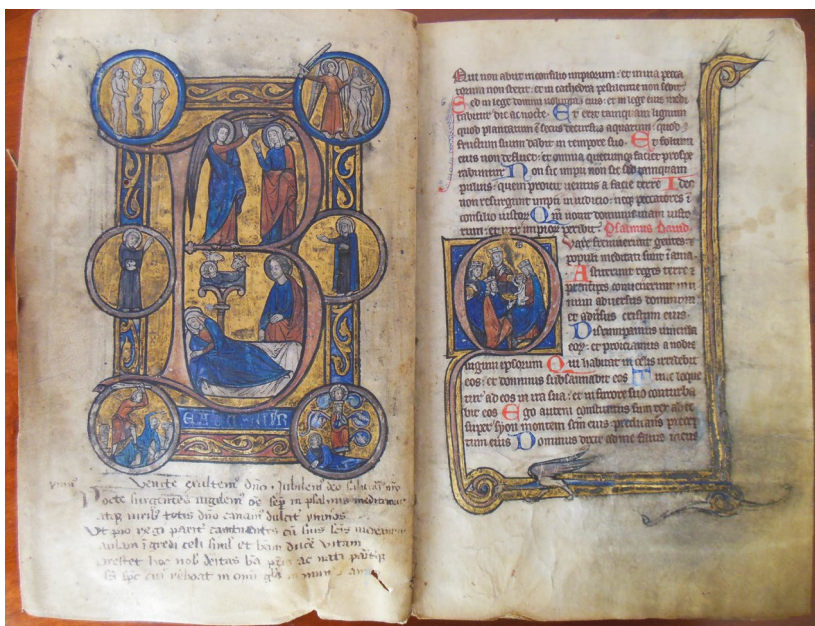 B
EATUS VIR
Venite exultem dno Jubilem deo salu
Nocte surgentes vigilem oe semp in psalmis meditemur
atq virib totis dno canam dulcit ymnos
Ut pio regi parit canentes cu suis scis mereamur
aulam igredi celi simul et bam ducere vitam
prestet hoc nob deitas ba pris ac nati paritq
sps cui reboat in omi gla mun
Qui non abiit in consilio impiorum: et in via pecca
torum non stetit: et in cathedra pestilencie non sedit
Sed in lege domini voluntas eius: et in lege eius medi
tabitur die ac nocte. Et erit tamquam lignum
quod plantatum e secus decursus aquarum: quod
fructum suum dabit in tempore suo. Et folium
eius non defluet: et omnia quecumq faciet prospe
rabuntur. Non sic impii non sic sed tamquam
puluis: quem proicit ventus a facie terre. Ideo
non resurgunt impii in iudicio: neq peccatores i
consilio iustor. Qm nouit dominus viam iusto
rum: et iter impior peribit. Psalmus david.
Quare fremuerunt gentes: et
populi meditati sunt inania.
Astiterunt reges terre et
principes conuenerunt in
unum aduersus dominum
et aduersus cristum eius.
Disrumpamus vincula
eor: et proiciamus a nobis
iugum ipsorum. Qui habitat in celis irridebit
eos: et dominus subsannabit eos. Tunc loque
tur ad eos in ira sua: et in furore suo conturba
bit eos. Ego autem constitutus sum rex ab eo
super syon montem scm eius: predicans precep
tum eius. Dominus dixit ad me filius meus